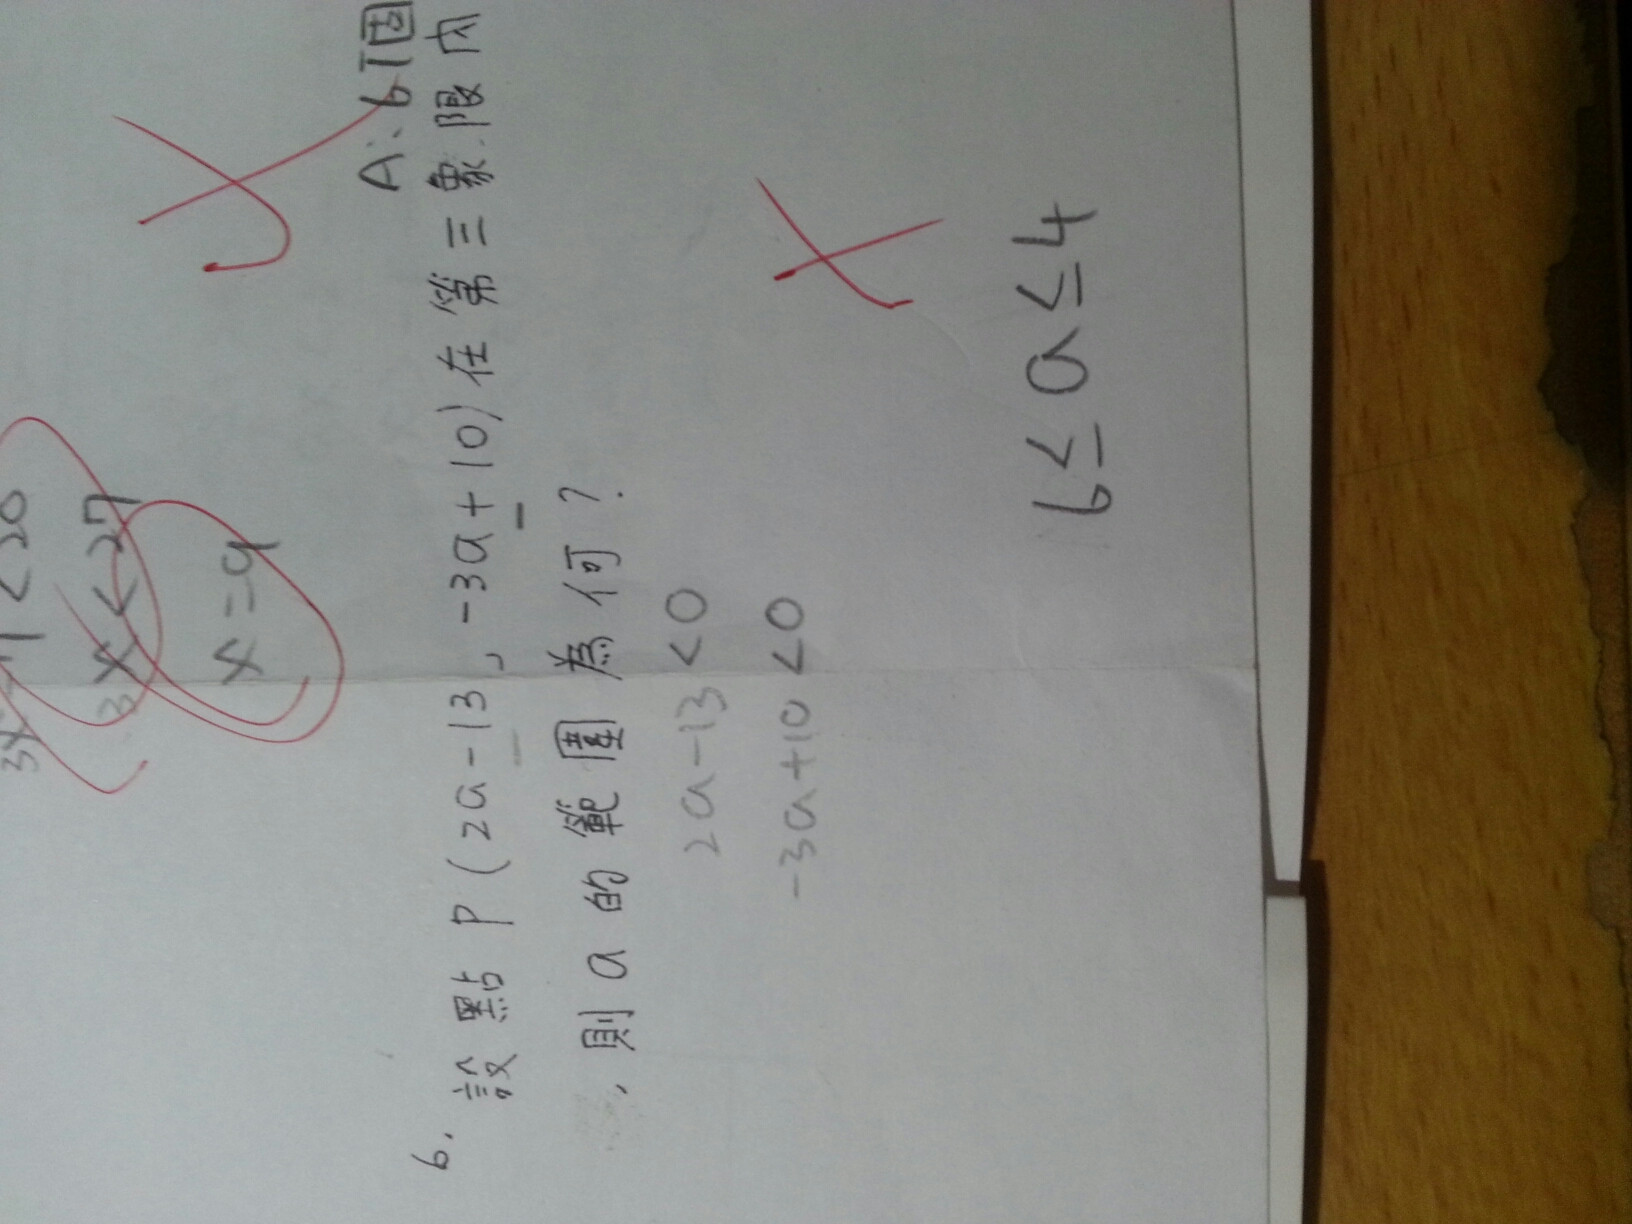 3x-7<20
3x<27
x=9
A:6個
6. 設點P(2a-13,-3a+10)在第三象限內
,則a的範圍為何?
2a-13<0
-3a+10<0
6≤a≤4